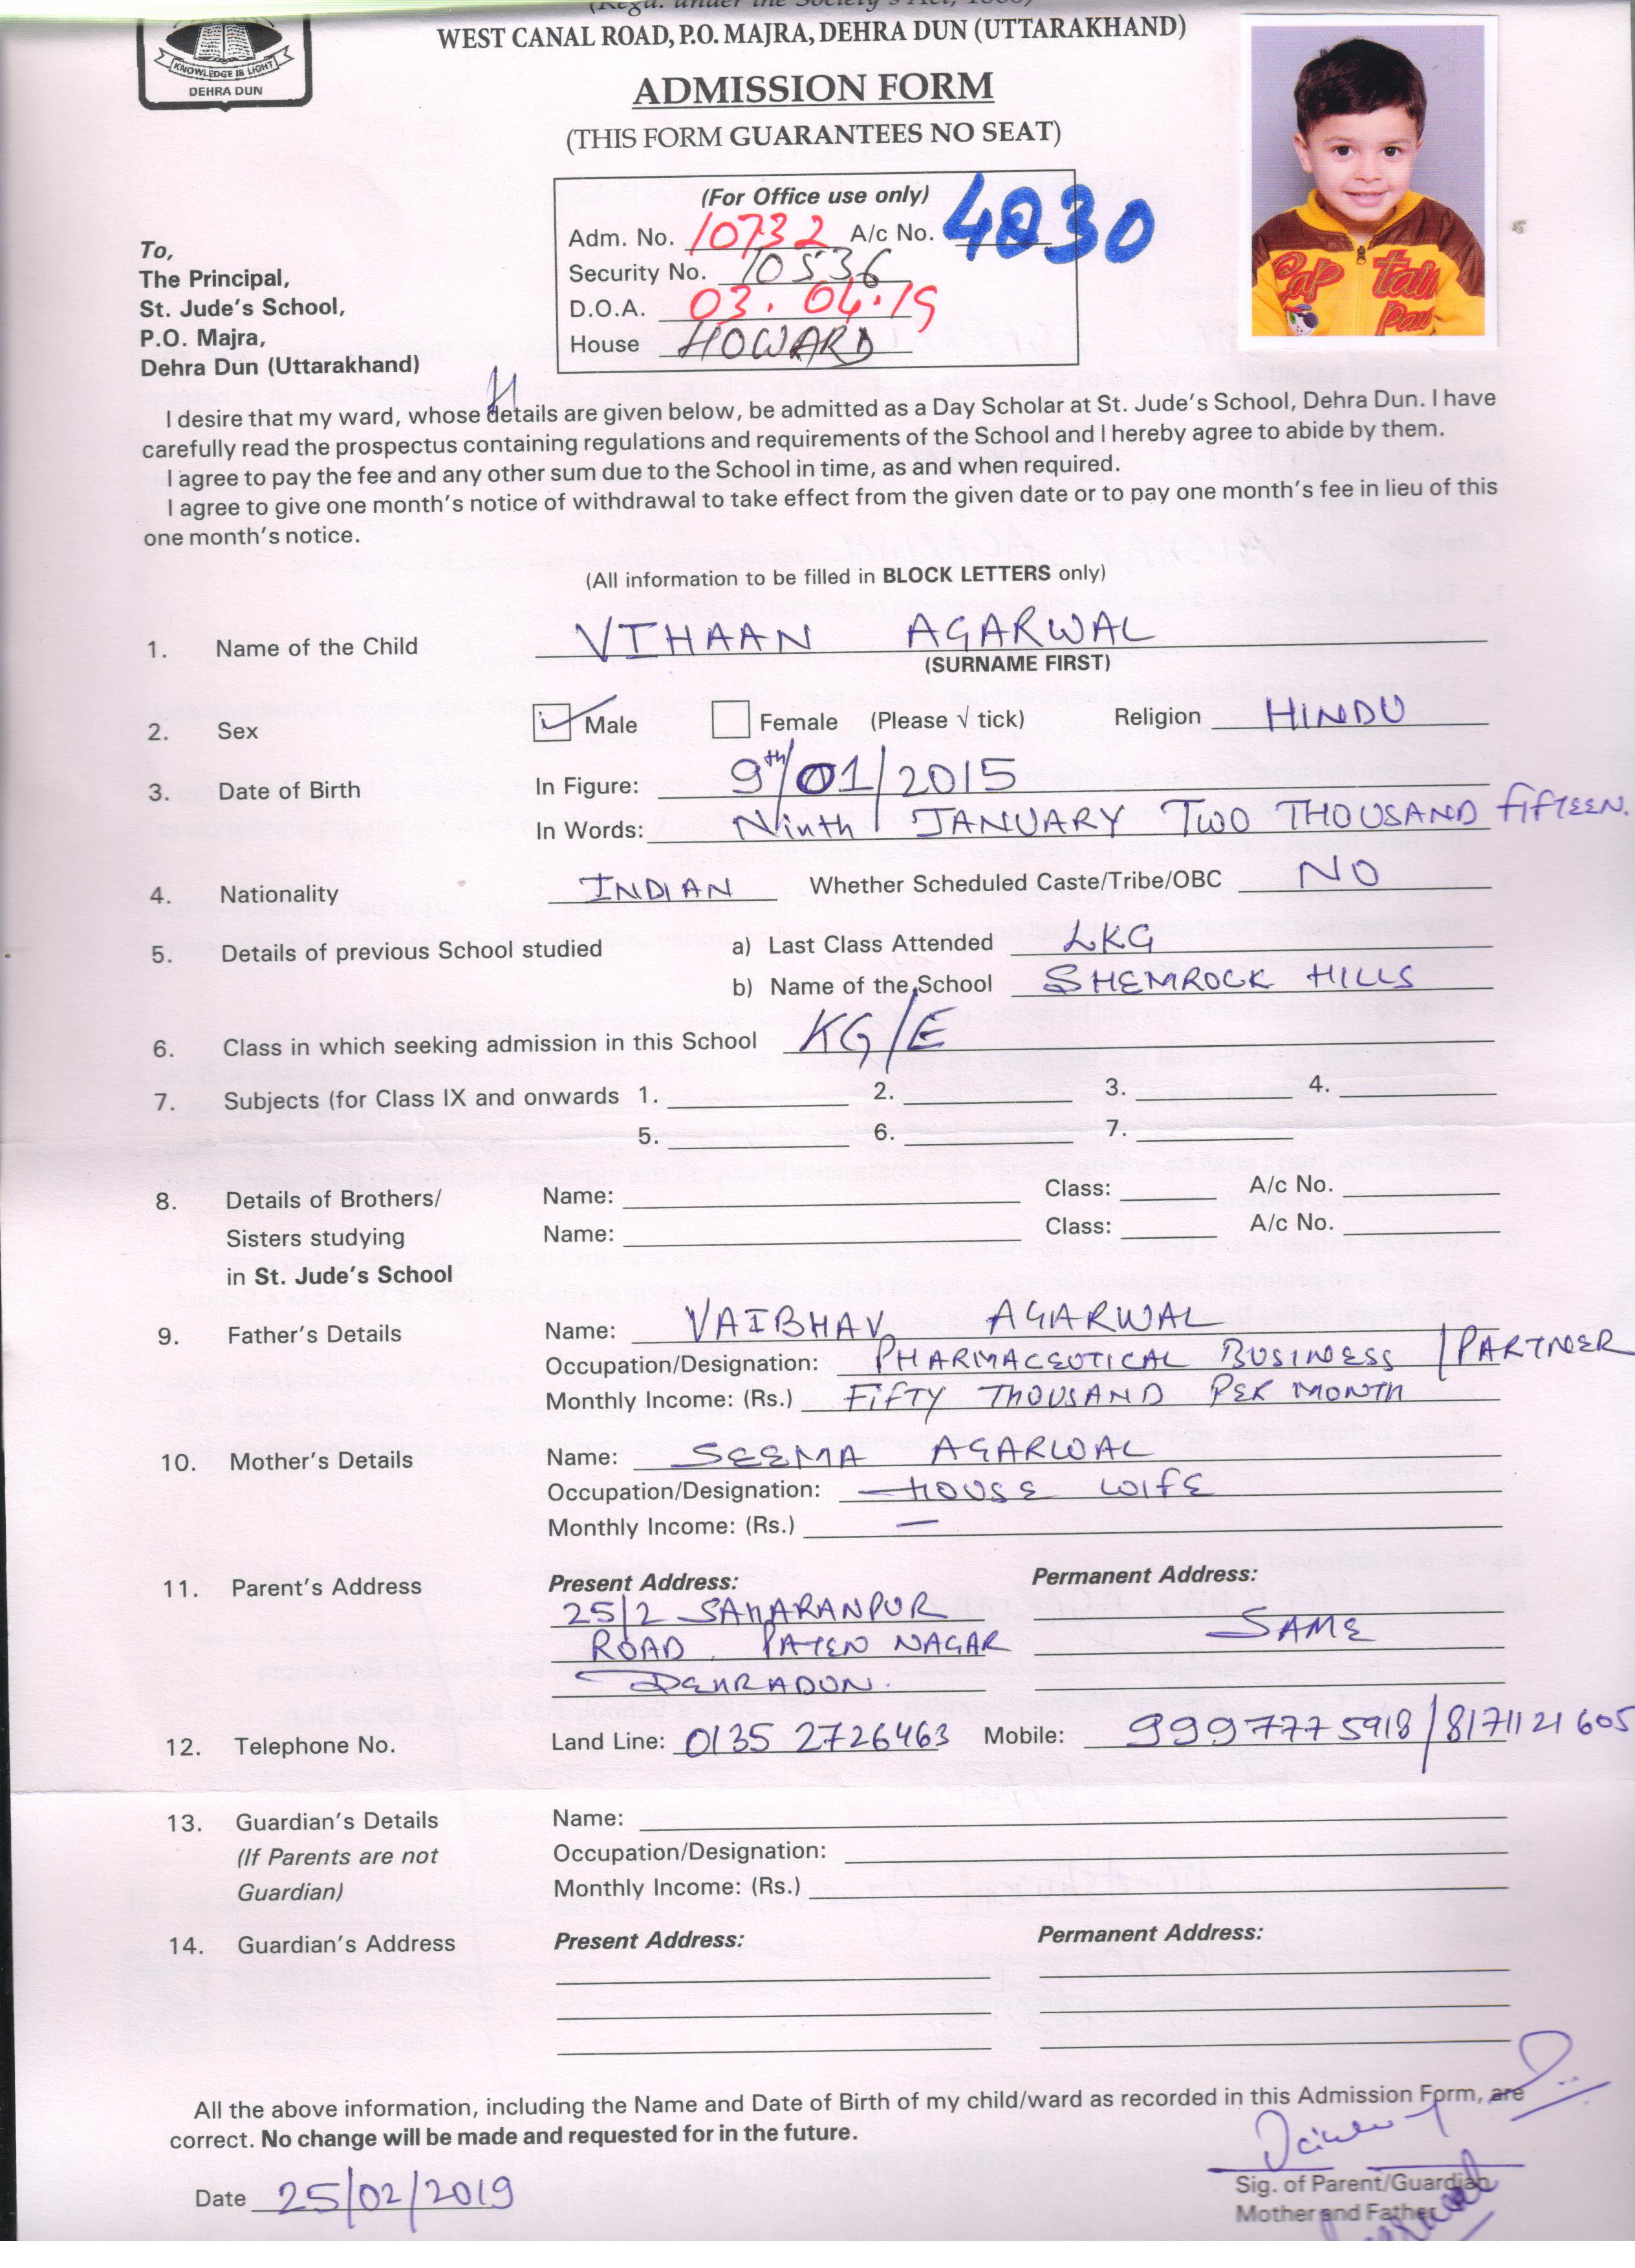 (Regd. under the Society's Act, 1860)
WEST CANAL ROAD, P.O. MAJRA, DEHRA DUN (UTTARAKHAND)
KNOWLEDGE IS LIGHT
DEHRA DUN
ADMISSION FORM
(THIS FORM GUARANTEES NO SEAT)
(For Office use only)
Adm. No. 10732 A/c No. 4830
Security No. 10536
D.O.A. 03.04.19
House HOWARD
To,
The Principal,
St. Jude's School,
P.O. Majra,
Dehra Dun (Uttarakhand)
I desire that my ward, whose details are given below, be admitted as a Day Scholar at St. Jude's School, Dehra Dun. I have
carefully read the prospectus containing regulations and requirements of the School and I hereby agree to abide by them.
I agree to pay the fee and any other sum due to the School in time, as and when required.
I agree to give one month's notice of withdrawal to take effect from the given date or to pay one month's fee in lieu of this
one month's notice.
(All information to be filled in BLOCK LETTERS only)
1. Name of the Child VIHAAN AGARWAL
(SURNAME FIRST)
2. Sex Male Female (Please √ tick) Religion HINDU
3. Date of Birth In Figure: 9th/01/2015
In Words: Ninth / JANUARY TWO THOUSAND FIFTEEN.
4. Nationality INDIAN Whether Scheduled Caste/Tribe/OBC NO
5. Details of previous School studied a) Last Class Attended LKG
b) Name of the School SHEMROCK HILLS
6. Class in which seeking admission in this School KG/E
7. Subjects (for Class IX and onwards 1. 2. 3. 4.
5. 6. 7.
8. Details of Brothers/ Name: Class: A/c No.
Sisters studying Name: Class: A/c No.
in St. Jude's School
9. Father's Details Name: VAIBHAV AGARWAL
Occupation/Designation: PHARMACEUTICAL BUSINESS / PARTNER
Monthly Income: (Rs.) FIFTY THOUSAND PER MONTH
10. Mother's Details Name: SEEMA AGARWAL
Occupation/Designation: HOUSE WIFE
Monthly Income: (Rs.) —
11. Parent's Address Present Address: Permanent Address:
25/2 SAHARANPUR
ROAD, PATEN NAGAR SAME
DEHRADUN.
12. Telephone No. Land Line: 0135 2726463 Mobile: 9997775918/8171121605
13. Guardian's Details Name:
(If Parents are not Occupation/Designation:
Guardian) Monthly Income: (Rs.)
14. Guardian's Address Present Address: Permanent Address:
All the above information, including the Name and Date of Birth of my child/ward as recorded in this Admission Form, are
correct. No change will be made and requested for in the future.
Date 25/02/2019
Sig. of Parent/Guardian
Mother and Father